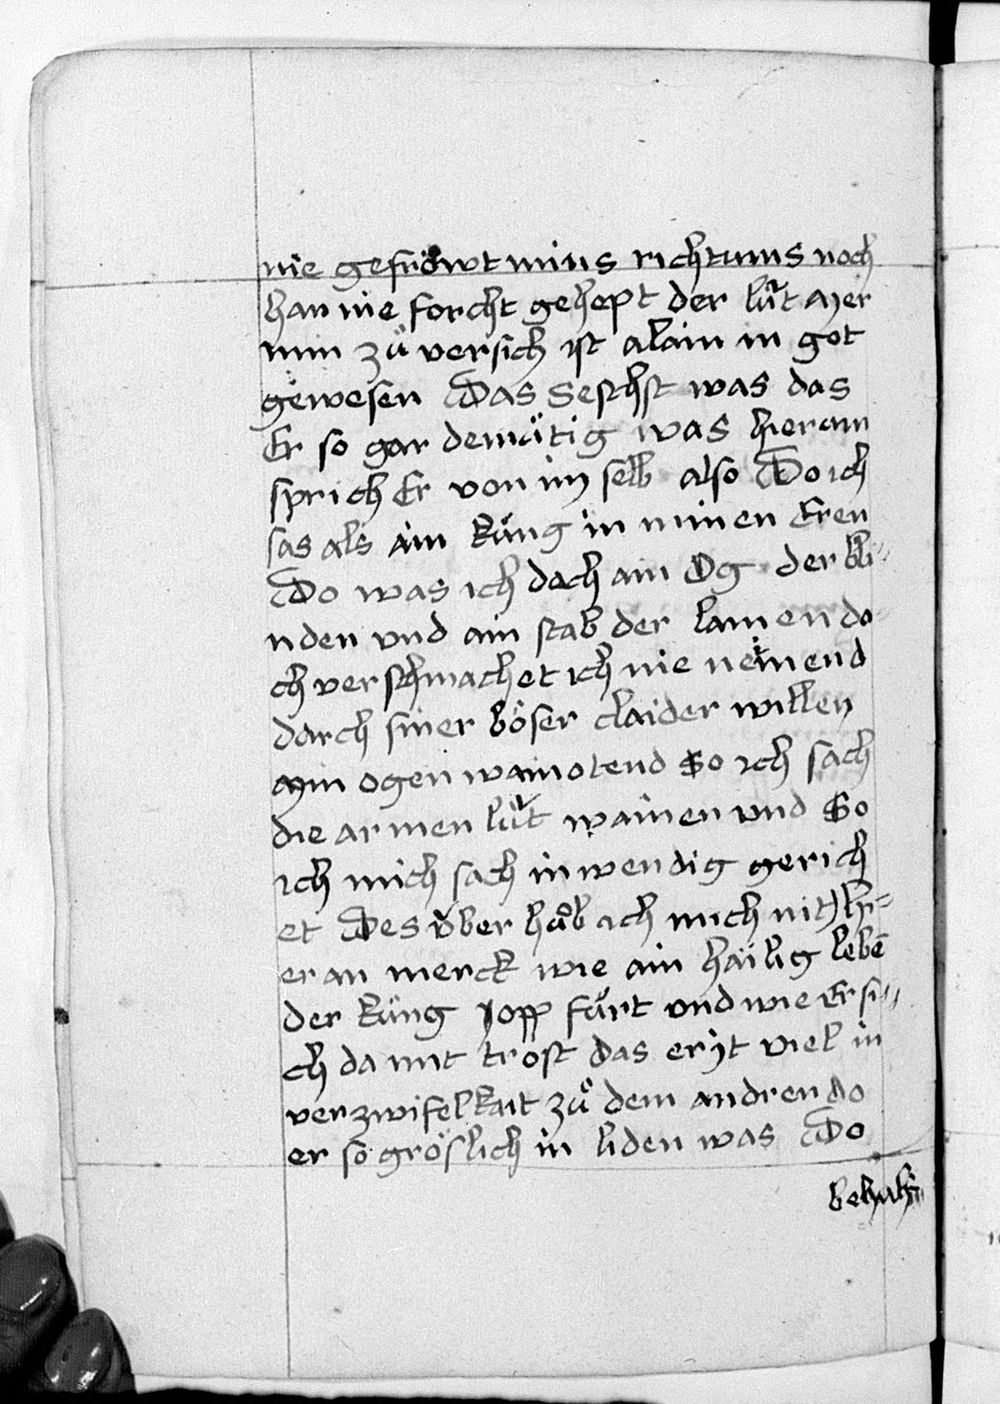 nie gefröwt mins richtums noch
han nie forcht gehept der lüt mer
min zů versich ist alain in got
gewesen Das Sechst was das
Er so gar demütig was hieram
sprich Er von im selb also Do ich
sas als ain küng in minen Eren
Do was ich doch ain Og der bli-
nden vnd ain stab der lamen do
ch verschmachet ich nie neimend
durch siner böser claider willen
Min ogen wainotend So ich sach
die armen lüt wainen vnd So
ich mich sach inwendig gerich
et Des über hůb ich mich nit) hi-
er an merck wie ain hailig lebē
der küng Jopp fůrt vnd wie Er si-
ch da mit trost das er it viel in
verzwifelkait zů dem andren do
er so gröslich in liden was Do